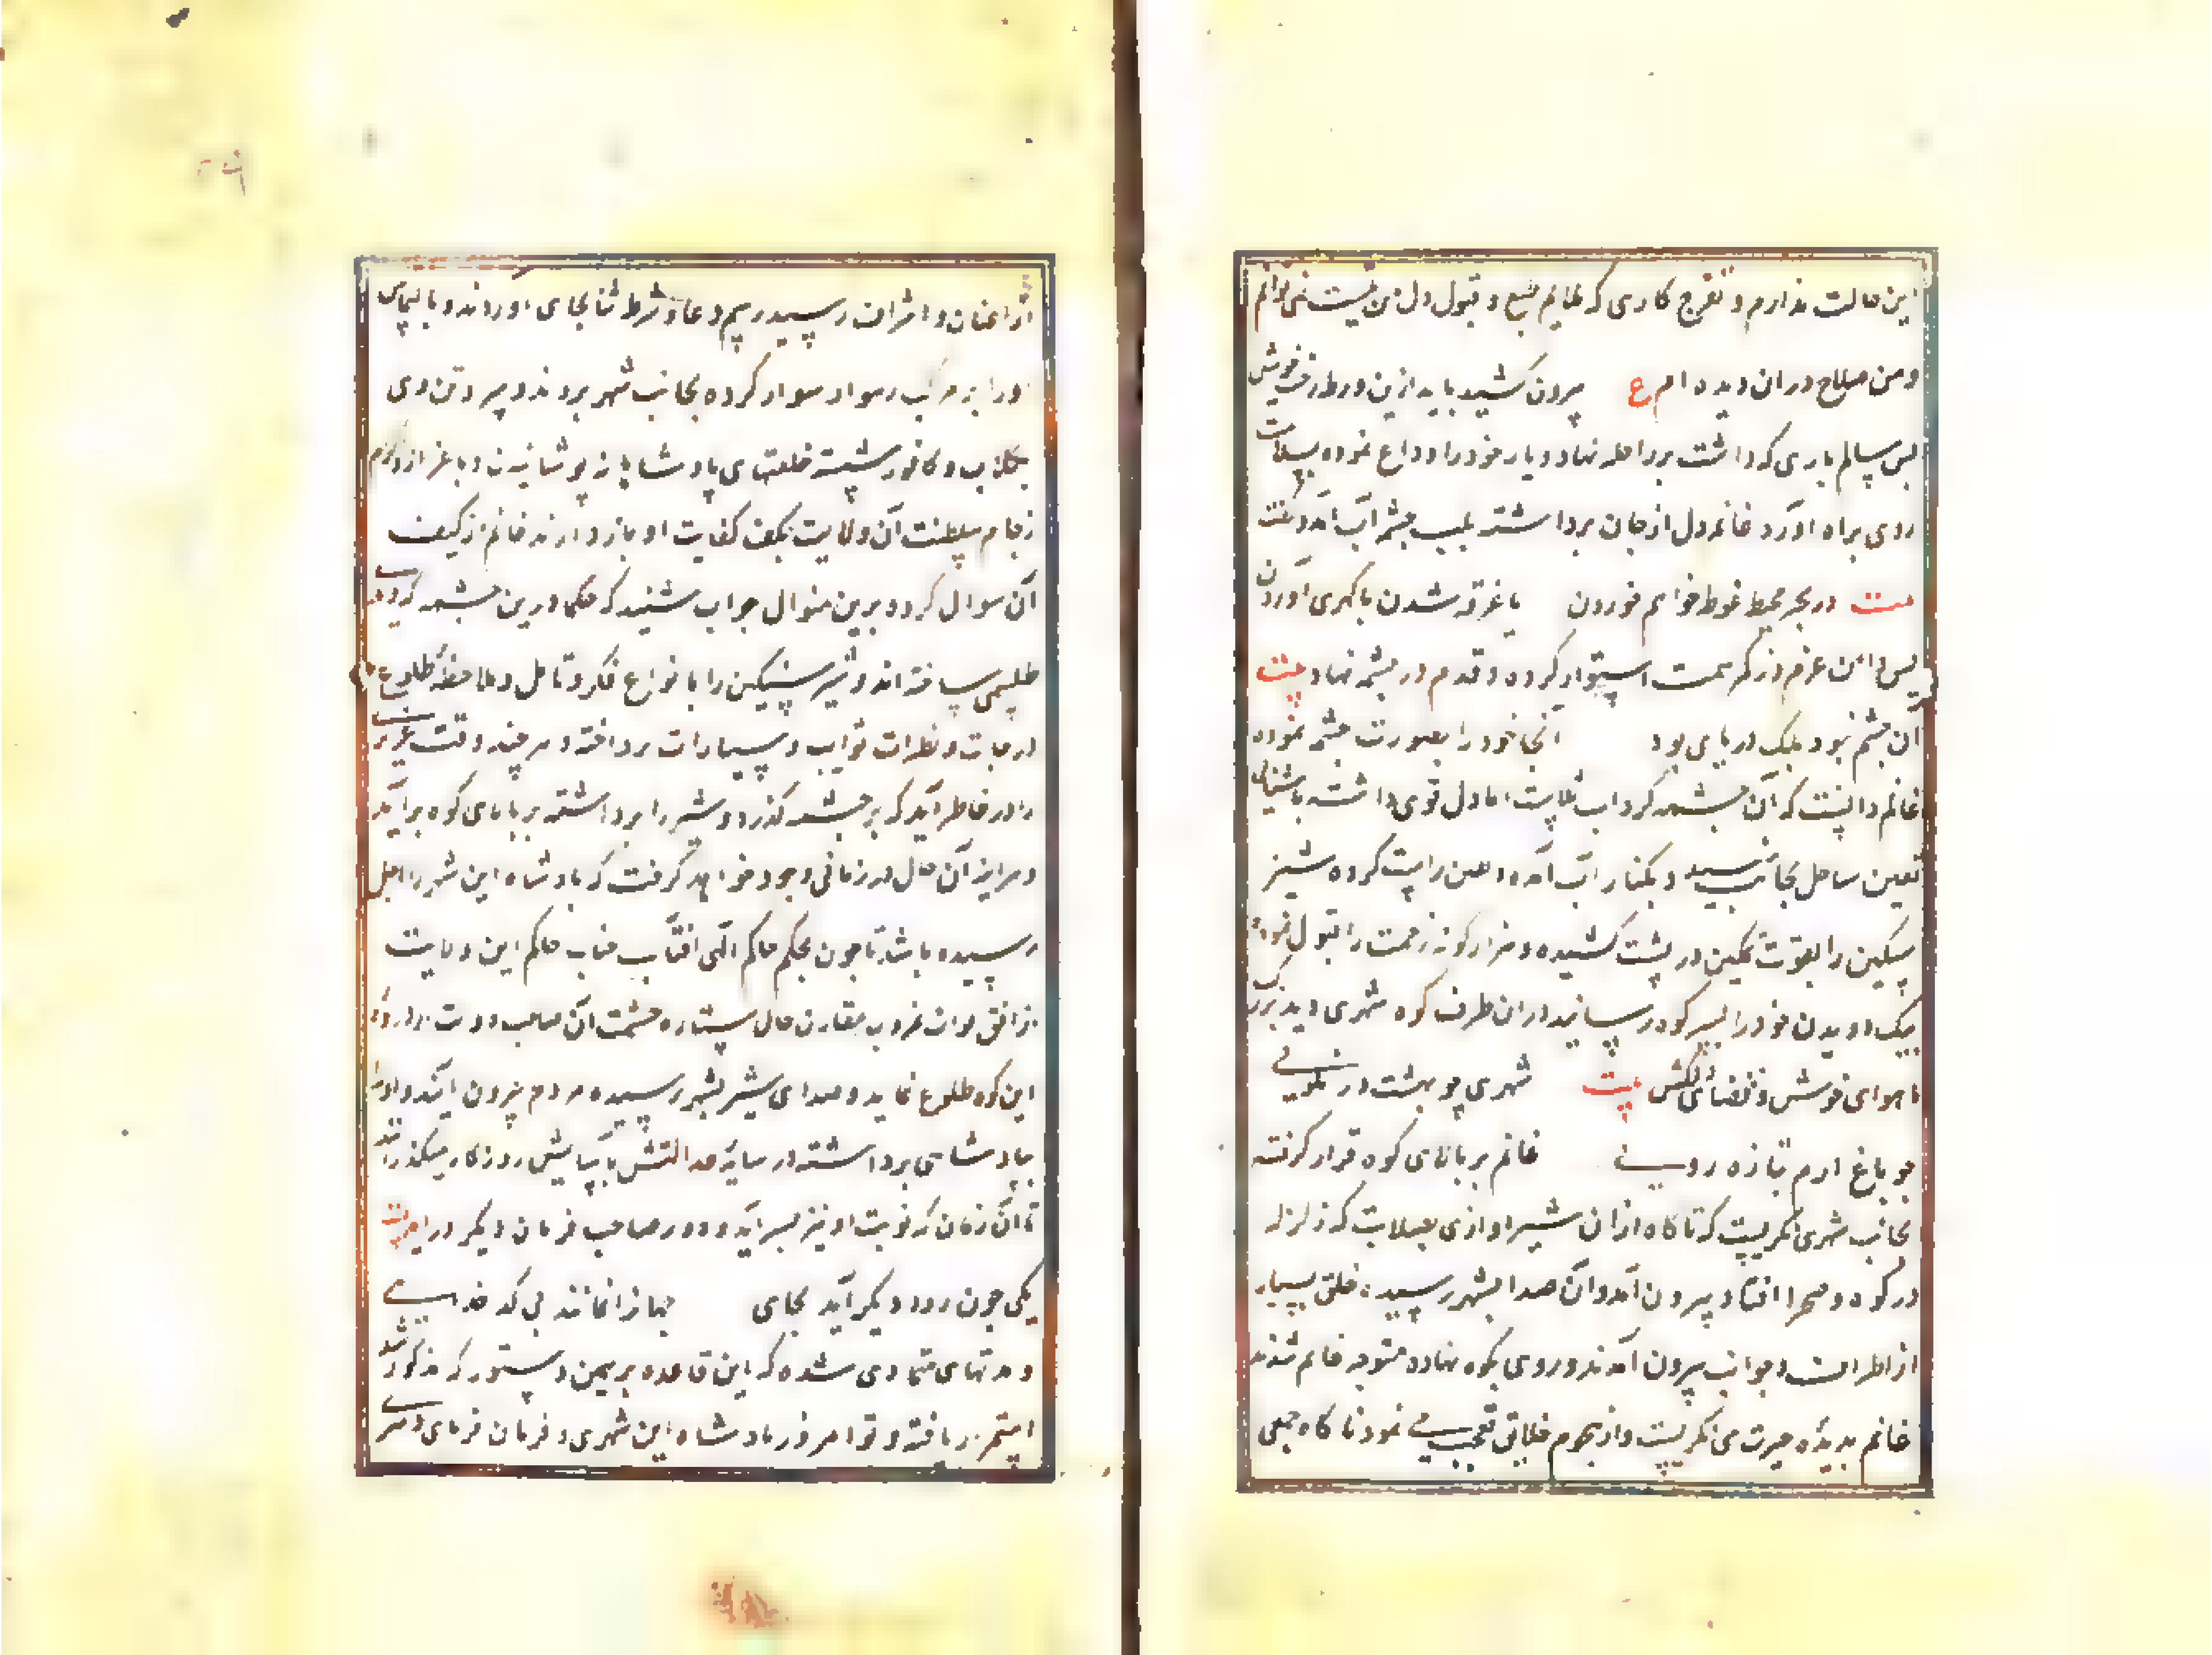 این حالت ندارم و تفرج کاری که ملایم طبع و قبول دل من نیست نمی توانم
و من صلاح در آن دیده ام ع بیرون کشید باید ازین ورطه رخت خویش
پس سالم باری که داشت بر راحله نهاد و یار خود را وداع نموده
روی براه آورد غانم دل از جان برداشته بلب چشمه آب آمد و گفت
بیت در بحر محیط غوطه خواهم خوردن یا غرقه شدن یا گهری آوردن
پس دامن عزم در کمر همت استوار کرده و قدم در چشمه نهاد بیت
آن چشمه نبود بلک دریای بود آنجا خود را بصورت چشمه نموده
غانم دانست که آن چشمه کرداب بلاست اما دل قوی داشت باشنای
یقین ساحل نجات رسید و بکنار آب آمده و همن راست کرده شیر
سنکین را بقوت تمکین در پشت کشیده و هزار کونه زحمت را قبول نموده
بیک دویدن خود را بسر کوه رسانید از ان طرف کوه شهری دید بزرک
با هوای خوش و فضای دلکش بیت شهری چو بهشت در نکویی
چو باغ ارم بتازه رویی غانم بر بالای کوه قرار گرفته
بجانب شهر می نکریست که ناکاه از ان شیر اوازی بصلابت که زلزله
در کوه و صحرا افتاد بیرون آمد و آن صدا بشهر رسیده خلقی بسیار
از اطراف و جوانب بیرون آمدند و روی بکوه نهاده متوجه غانم شدند
غانم بدیده حیرت می نکریست و از هجوم خلایق تعجب می نمود ناکاه جمعی
از اعیان و اشراف رسیدند رسم دعا و شرط ثنا بجای آوردند و بالتماس
او را بر مرکب رهوار سوار کرده بجانب شهر بردند و سر و تن وی
بکلاب و کافور شسته خلعتهای پادشاهانه پوشانیدند و باعزاز و اکرام
زمام سلطنت آن ولایت بکف کفایت او باز دادند غانم از کیفیت
آن سوال کرد و برین منوال جواب شنید که حکما درین چشمه که دیدی
طلسمی ساخته اند و شیر سنکین را بانواع فکر و تامل و ملاحظه طلوع
درجات و نظرات ثوابت و سیارات پرداخته و هر چند وقت عزیزی
را در خاطر آید که بر چشمه گذرد و شیر را برداشته بر بالای کوه برآید
و هر آینه آن حال در زمانی وجود خواهد گرفت که پادشاه این شهر را اجل
رسیده باشد تا چون بحکم حاکم الهی آفتاب حیات حاکم این ولایت
از افق غروب مقارن حال ستاره حشمت آن صاحب دولت
این کوه طلوع نماید و صدای شیر بشهر رسیده مردم بیرون آیند و او را
بپادشاهی برداشته در سایه عدالتش باسایش روزکار میکذرانند
تا آن زمان که نوبت او نیز بسر آید و دور صاحب فرمان دیگر در آید بیت
یکی چون رود دیگر آید بجای جهان را نمانند بی کدخدایی
و مدتهای متمادی شده که این قاعده بر همین دستور که مذکور شد
استمرار یافته و تو امروز پادشاه این شهری و فرمان فرمای